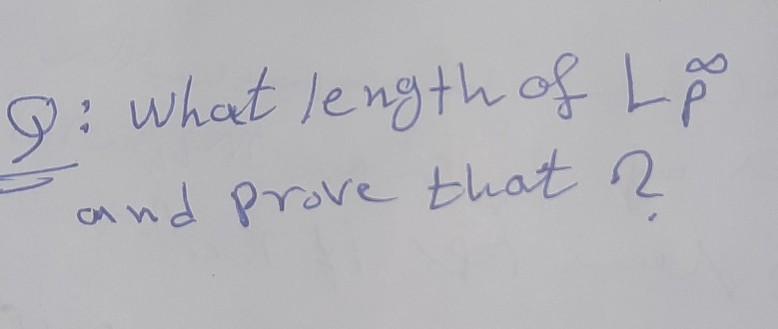 Q: What length of L p^∞
and prove that ?